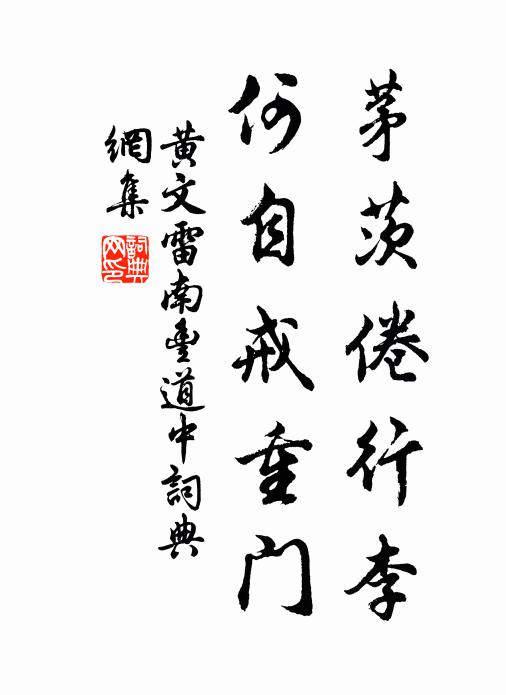 茅茨倦行李
何自戒重門
黃文雷南豐道中詞典
網集
詞典網印